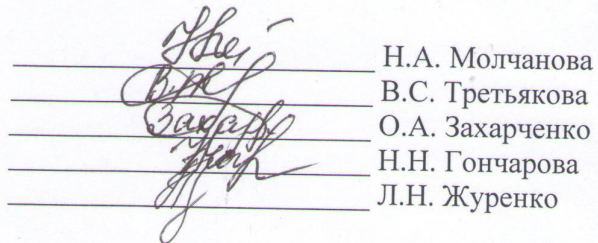 Н.А. Молчанова
В.С. Третьякова
О.А. Захарченко
Н.Н. Гончарова
Л.Н. Журенко